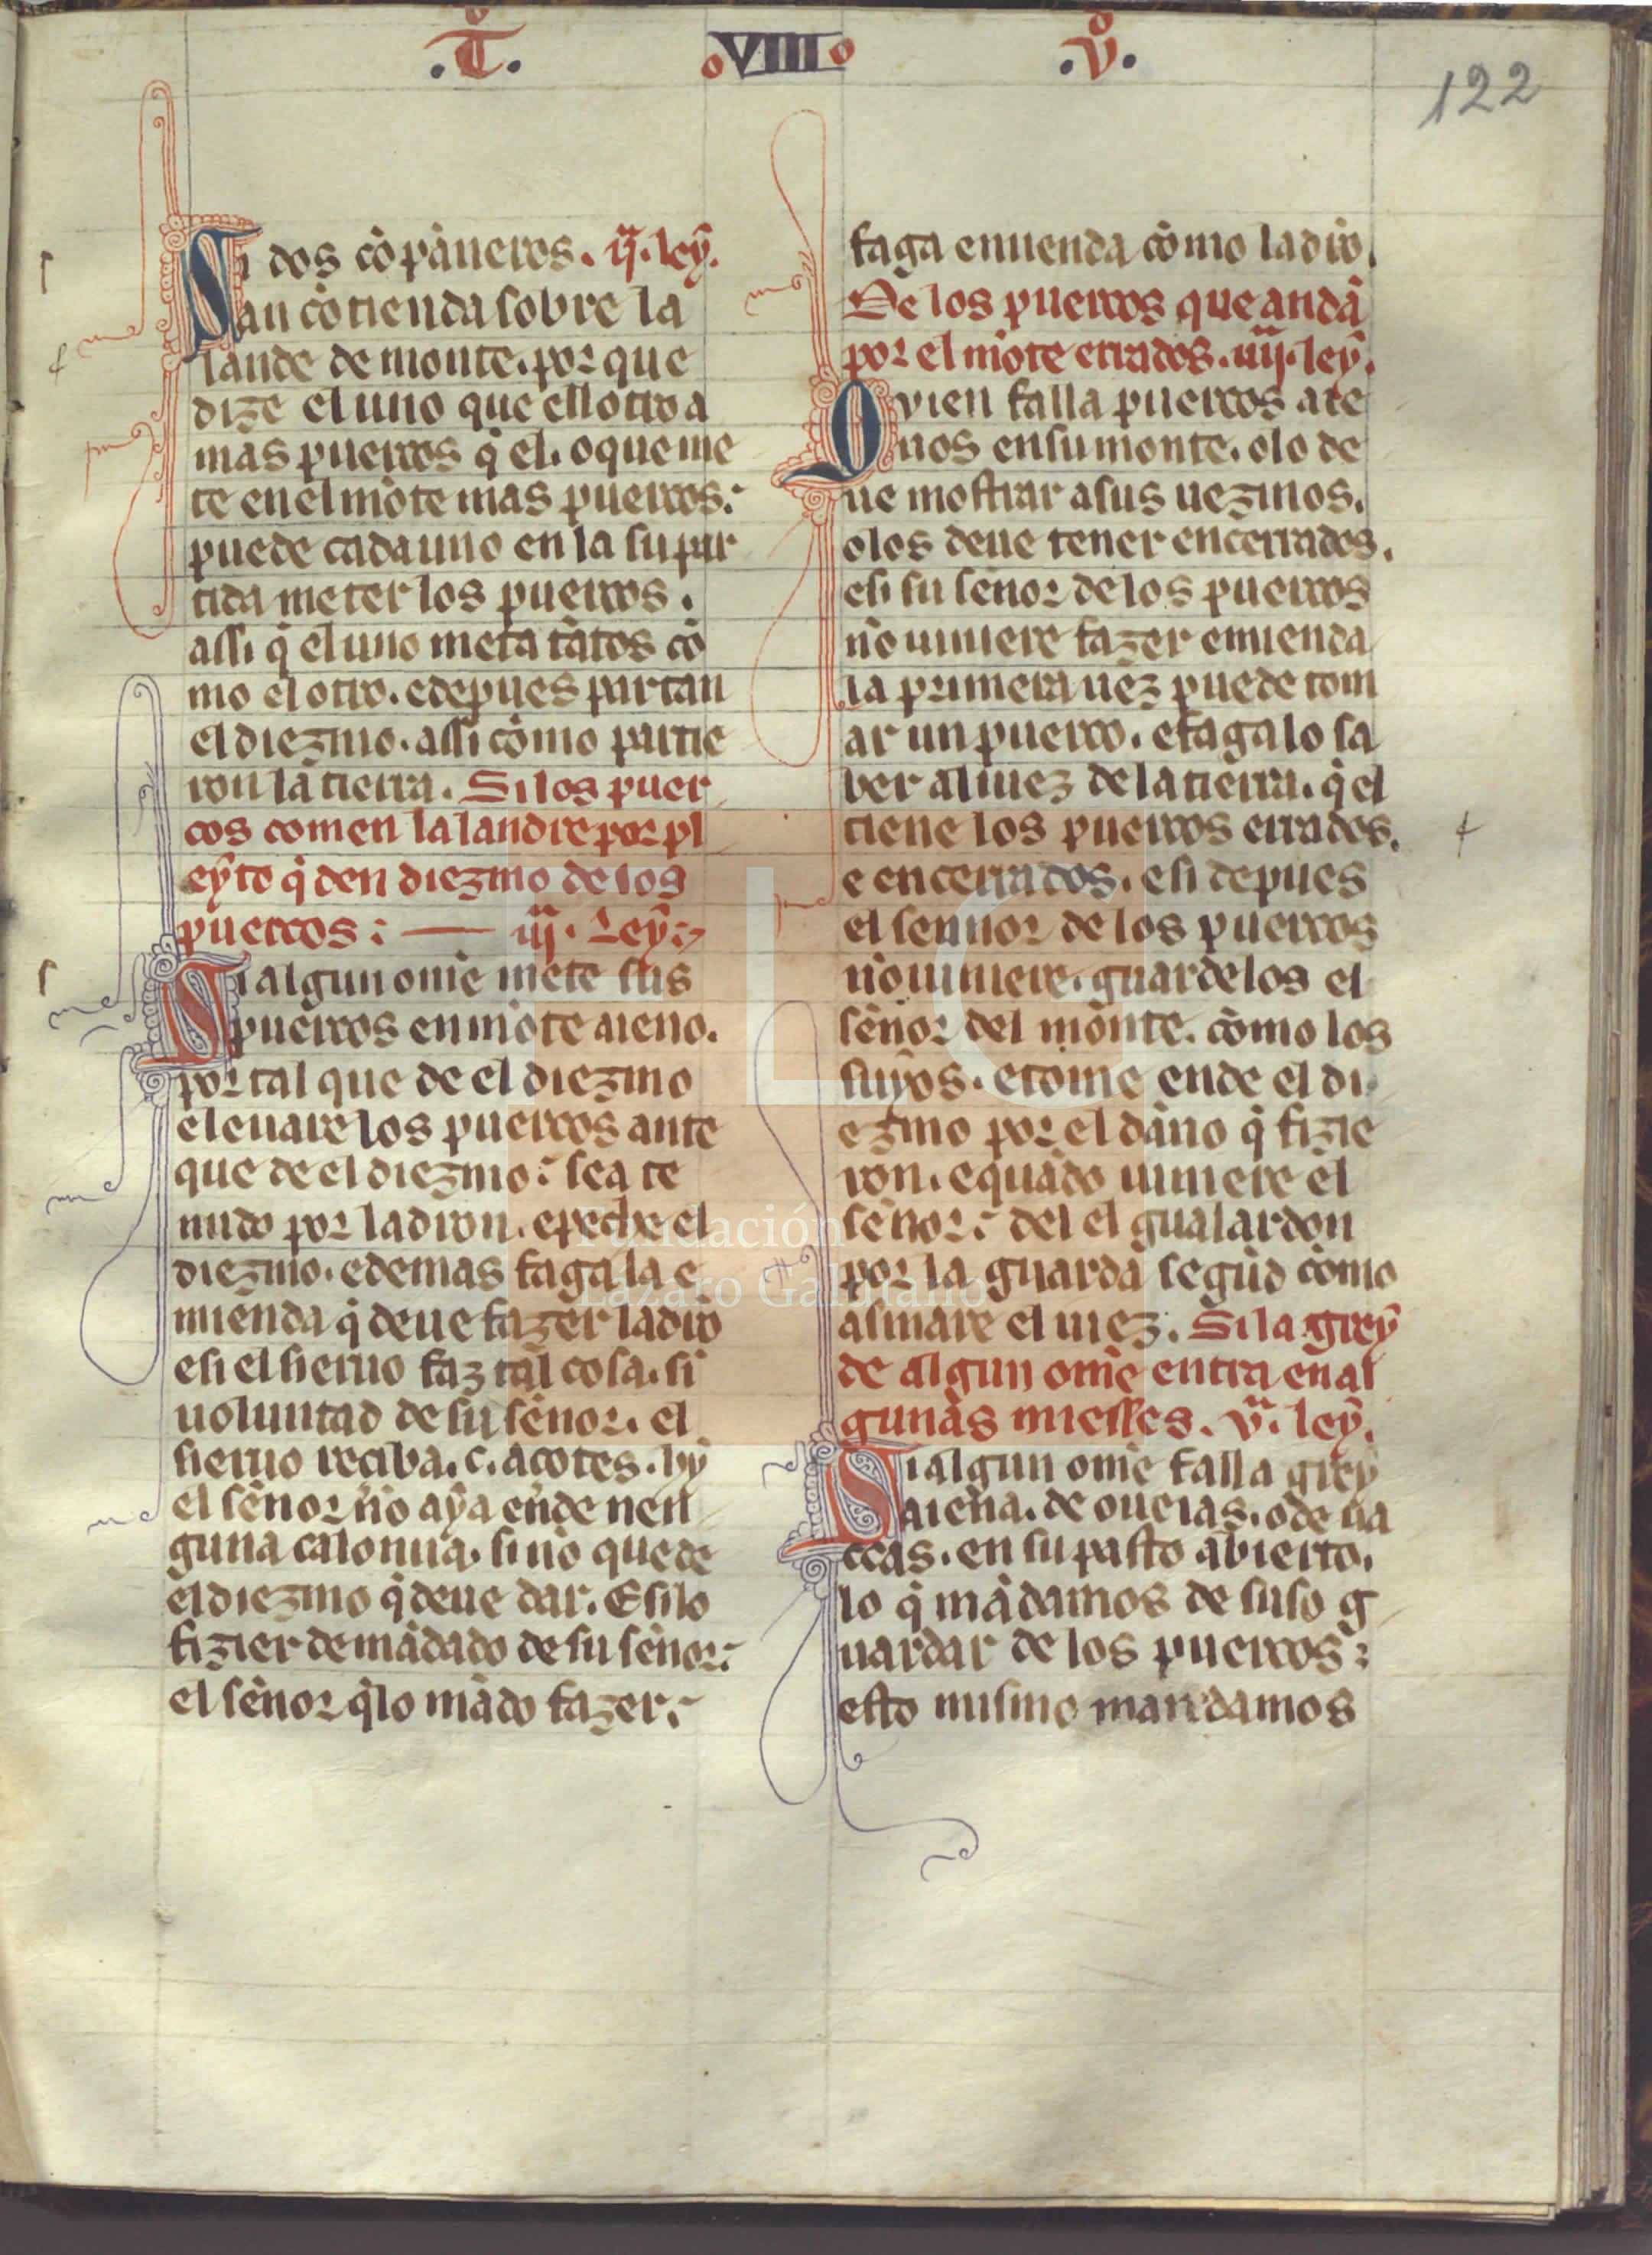 .Tͦ. ºVIIIº .vͦ.
122
Si dos cõpãneros. .ij. ley.
an cõtienda sobre la
lande de monte. por que
dize el uno que ell otro a
mas puercos q̃ el. o que me
te en el mõte mas puercos:
puede cada uno en la su par
tida meter los puercos.
assi q̃ el uno meta tãtos cõ
mo el otro. e depues partan
el diezmo. assi cõmo partie
ron la tierra. Si los puer
cos comen la landre por pl
eyto q̃ den diezmo de los
puercos: — iij. Ley:
Si algun omẽ mete sus
puercos en mõte aieno.
por tal que de el diezmo
e leuare los puercos ante
que de el diezmo: sea te
nudo por ladron. e peche el
diezmo. e demas faga la e
mienda q̃ deue fazer ladrõ
e si el sieruo faz tal cosa. si
uoluntad de su sẽnor. el
sieruo reciba. c. açotes. hy
el sẽnor nõ aya ende nen
guna calonna. si nõ que de
el diezmo q̃ deue dar. E si lo
fizier de mãdado de su sẽnor:
el sẽnor q̃lo mãdo fazer:
faga enuenda cõmo ladrõ.
De los puercos que andã
por el mõte errados. .iiij. ley.
Qvien falla puercos aie
nos en su monte. o lo de
ue mostrar a sus uezinos.
o los deue tener encerrados.
e si su sẽnor de los puercos
nõ uiniere fazer emienda
la primera uez puede tom
ar un puerco. e fagalo sa
ber al iuez de la tierra. q̃ el
tiene los puercos errados.
e encerrados. e si depues
el sennor de los puercos
nõ uiniere. guardelos el
sẽnor del monte. cõmo los
suyos. e tome ende el di
ezmo por el dãno q̃ fizie
ron. e quãdo uiniere el
sẽnor: del el gualardon
por la guarda segũd cõmo
asmare el iuez. Si la grey
de algun omẽ entra en al
gunas miesses. v. ley.
Si algun omẽ falla grey
aiena. de oueias. o de ua
ccas. en su pasto abierto.
lo q̃ mãdamos de suso g
uardar de los puercos:
esto mismo mandamos
FLG
Fundación
Lázaro Galdiano